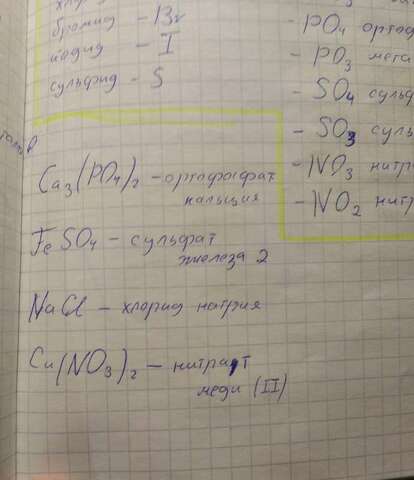 бромид - Br
йодид - I
сульфид - S
- PO4
- PO3
- SO4
- SO3
- NO3
- NO2
Ca3(PO4)2 - ортофосфат
кальция
FeSO4 - сульфат
железа 2
NaCl - хлорид натрия
Cu(NO3)2 - нитрат
меди (II)